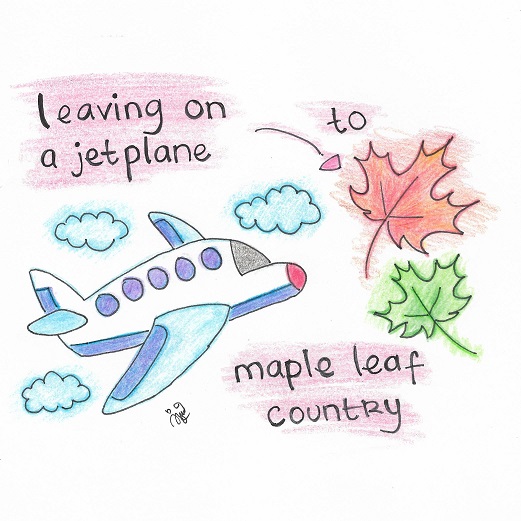 leaving on
a jetplane
to
maple leaf
country